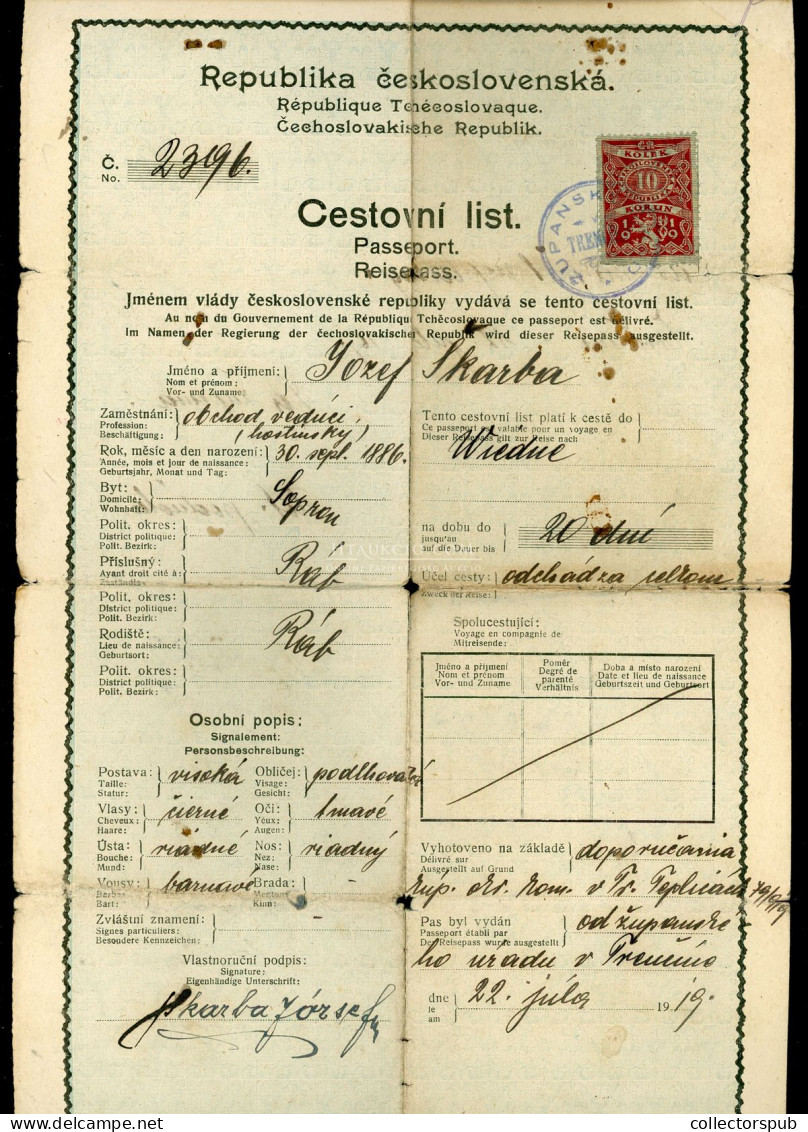 Republika československá.
République Tchécoslovaque.
Čechoslovakische Republik.
Č.
No.
2396.
KOLEK
10
KORUN
1919
ŽUPANSK
TREN
Cestovní list.
Passeport.
Reisepass.
Jménem vlády československé republiky vydává se tento cestovní list.
Au nom du Gouvernement de la République Tchécoslovaque ce passeport est délivré.
Im Namen der Regierung der čechoslovakischen Republik wird dieser Reisepass ausgestellt.
Jméno a příjmení:
Nom et prénom:
Vor- und Zuname:
Jozef Skarba
Zaměstnání:
Profession:
Beschäftigung:
obchod vedúci
(hostinský)
Rok, měsíc a den narození:
Année, mois et jour de naissance:
Geburtsjahr, Monat und Tag:
30. sept. 1886.
Byt:
Domicile:
Wohnhaft:
Sopron
Polit. okres:
District politique:
Polit. Bezirk:
Příslušný:
Ayant droit cité à:
Zuständig:
Ráb
Polit. okres:
District politique:
Polit. Bezirk:
Rodiště:
Lieu de naissance:
Geburtsort:
Ráb
Polit. okres:
District politique:
Polit. Bezirk:
Osobní popis:
Signalement:
Personsbeschreibung:
Postava:
Taille:
Statur:
visoká
Obličej:
Visage:
Gesicht:
podlhovatý
Vlasy:
Cheveux:
Haare:
čierné
Oči:
Yeux:
Augen:
tmavé
Ústa:
Bouche:
Mund:
riadné
Nos:
Nez:
Nase:
riadný
Vousy:
Barbes
Bart:
barnavé
Brada:
Mentom
Kinn:
Zvláštní znamení:
Signes particuliers:
Besondere Kennzeichen:
Vlastnoruční podpis:
Signature:
Eigenhändige Unterschrift:
Skarba József
Tento cestovní list platí k cestě do
Ce passeport est valable pour un voyage en
Dieser Reisepass gilt zur Reise nach
Wiedne
na dobu do
jusqu'au
auf die Dauer bis
20 dní
Účel cesty:
Zweck der Reise:
odchádza
Spolucestující:
Voyage en compagnie de
Mitreisende:
Jméno a příjmení
Nom et prénom
Vor- und Zuname
Poměr
Degré de
parenté
Verhältnis
Doba a místo narození
Date et lieu de naissance
Geburtszeit und Geburtsort
Vyhotoveno na základě
Délivré sur
Ausgestellt auf Grund
doporučania
žup. kr. kom. v Tr. Tepliciach
Pas byl vydán
Passeport établi par
Der Reisepass wurde ausgestellt
od županské-
ho uradu v Trenčíne
dne
le
am
22. júla 1919.
collectorspub